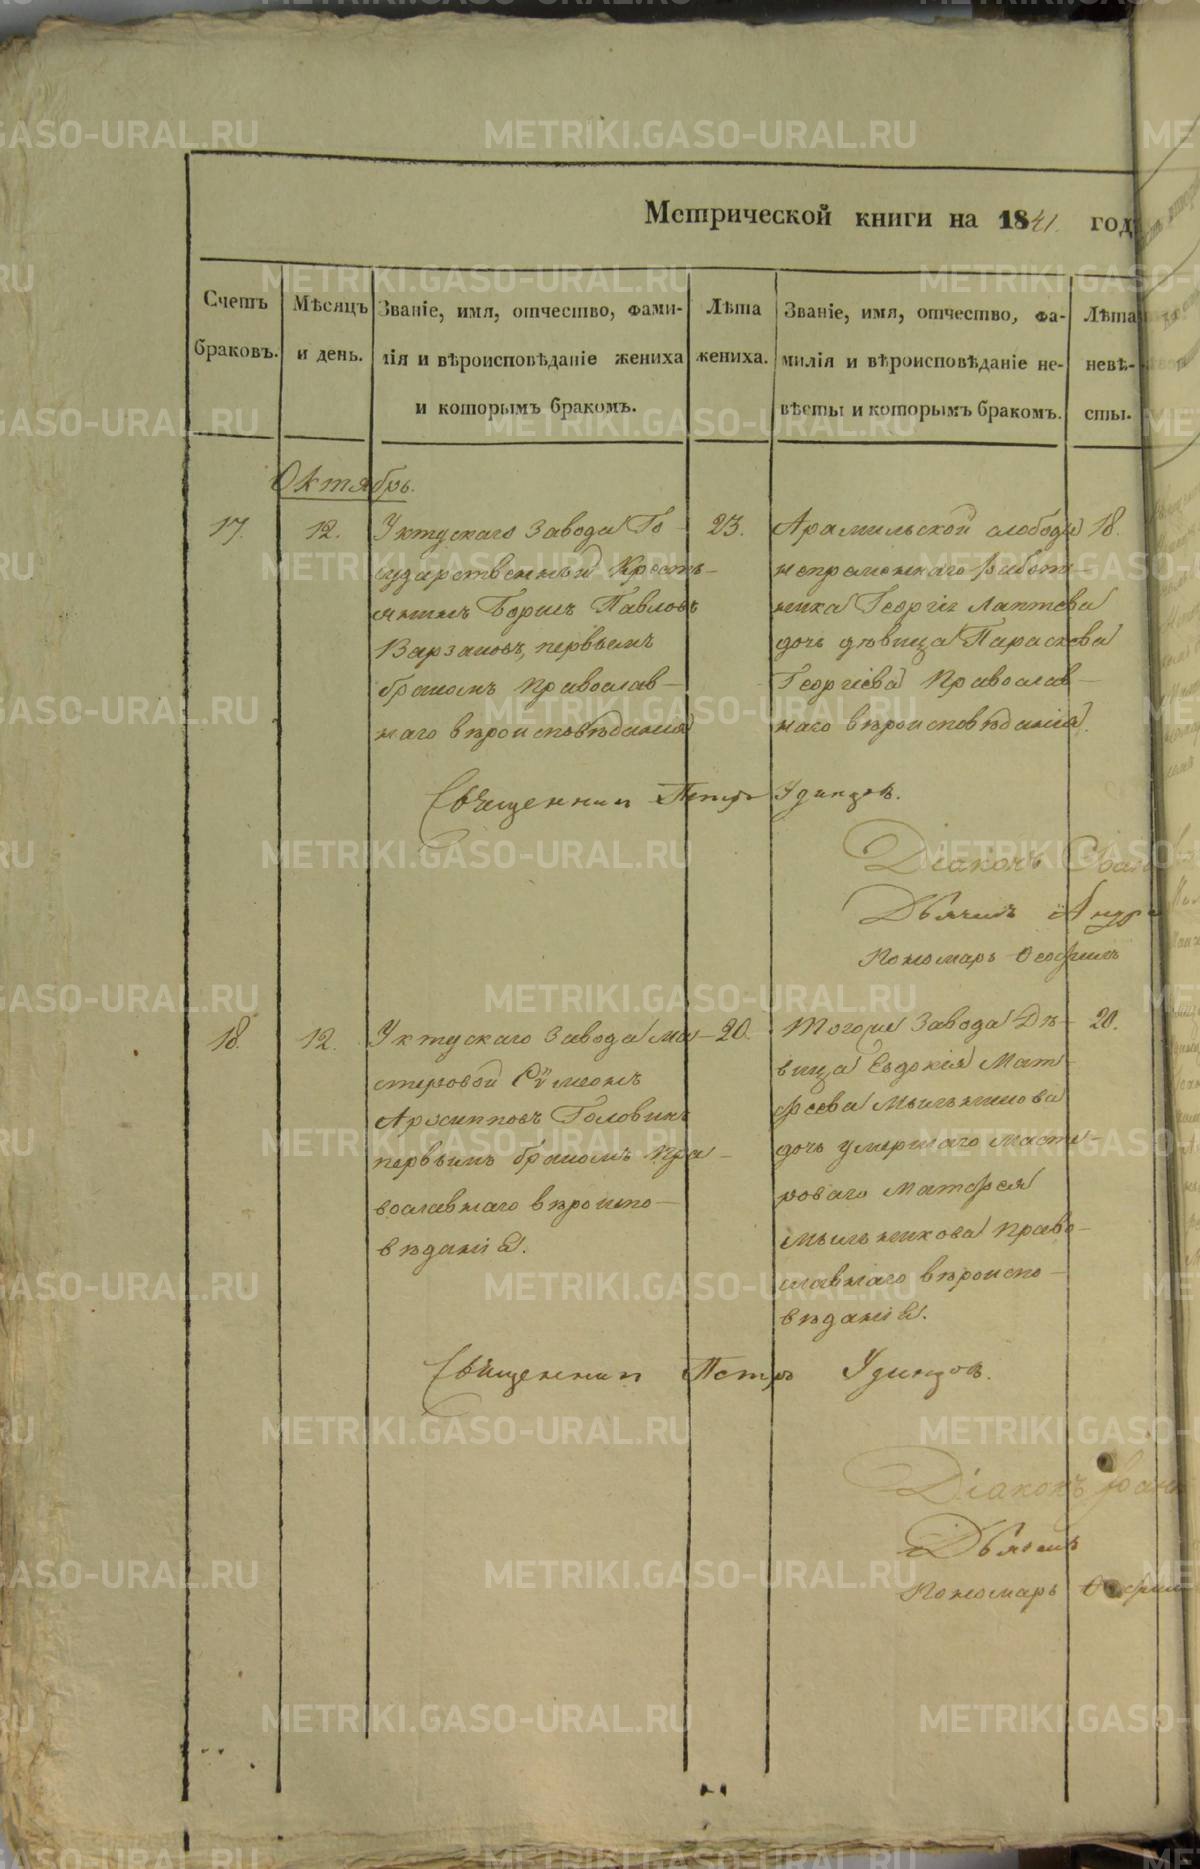 Метрической книги на 1841. год
Счетъ браковъ.
Мѣсяцъ и день.
Званіе, имя, отчество, фами-
лія и вѣроисповѣданіе жениха
и которымъ бракомъ.
Лѣта жениха.
Званіе, имя, отчество, фа-
милія и вѣроисповѣданіе не-
вѣсты и которымъ бракомъ.
Лѣта невѣ-
сты.
Октябрь.
17. 12.
Уктускаго завода Го-
сударственный Кресть-
янинъ Борисъ Павловъ
Варзановъ, первымъ
бракомъ Православ-
наго вѣроисповѣданія
23.
Арамильской слободы
непременнаго работ-
ника Георгія Лаптева
дочь дѣвица Параскева
Георгіева Православ-
наго вѣроисповѣданія.
18.
Священник Петръ Удинцов.
Діаконъ
Дьячекъ Андре
Пономарь Ѳеофилъ
18. 12.
Уктускаго завода ма-
стеровой Сѵмеонъ
Архиповъ Головинъ
первымъ бракомъ Пра-
вославнаго вѣроиспо-
вѣданія.
20.
Тогоже завода Дѣ-
вица Евдокія Мат-
фѣева Мыльникова
дочь умершаго масте-
роваго Матфея
Мыльникова Право-
славнаго вѣроиспо-
вѣданія.
20.
Священник Петръ Удинцов.
Діаконъ
Дьячекъ
Пономарь Ѳеофил
METRIKI.GASO-URAL.RU